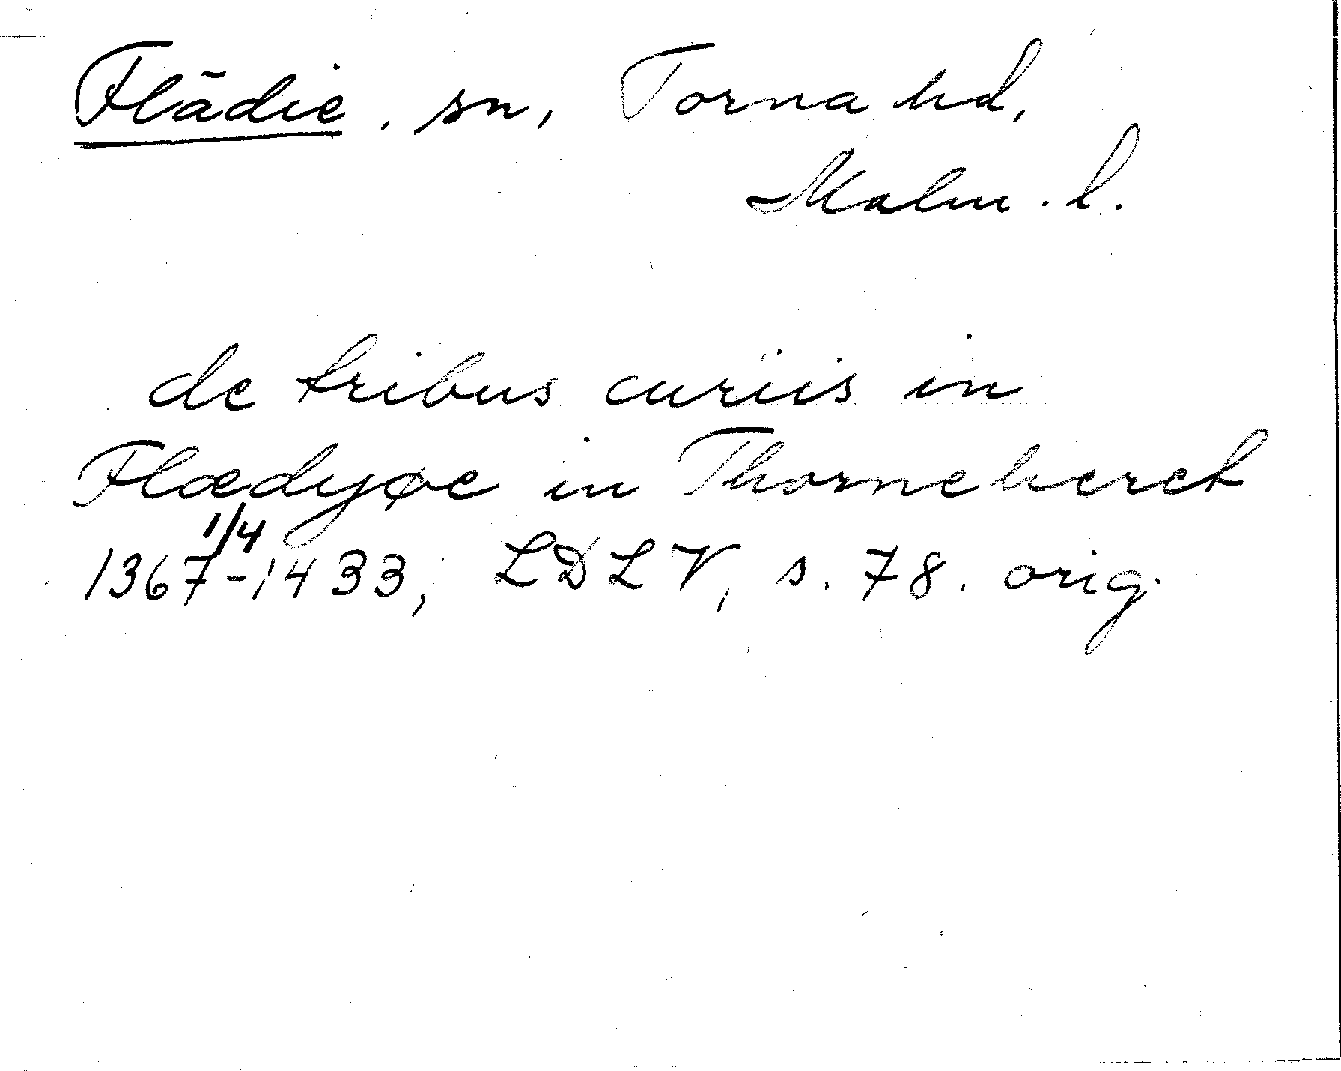 Flädie. sn, Torna hd,
Malm. l.
de tribus curiis in
Flædyøe in Thorneheret
1367 1/4 -1433, LDLV, s. 78. orig.